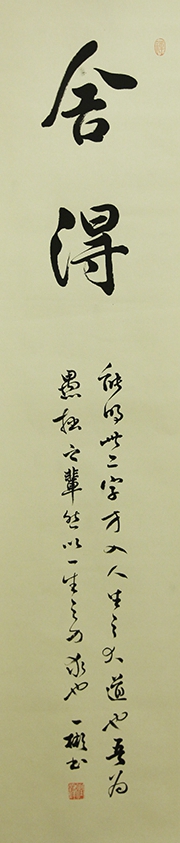 舍得
能明此二字方入人生之大道也吾为
愚拙之輩然以一生之力求也 一樹书